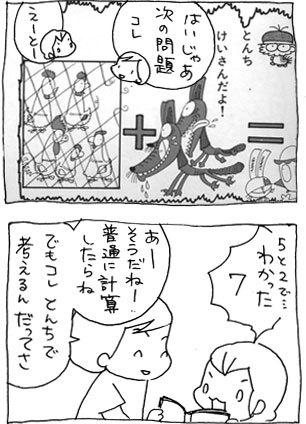 はいじゃあ
次の問題
コレ
えーと…
とんち
けいさんだよ!
+
=
5と2で…
わかった
7
あー
そうだねー…
普通に計算
したらね
でもコレ とんちで
考えるんだってさ